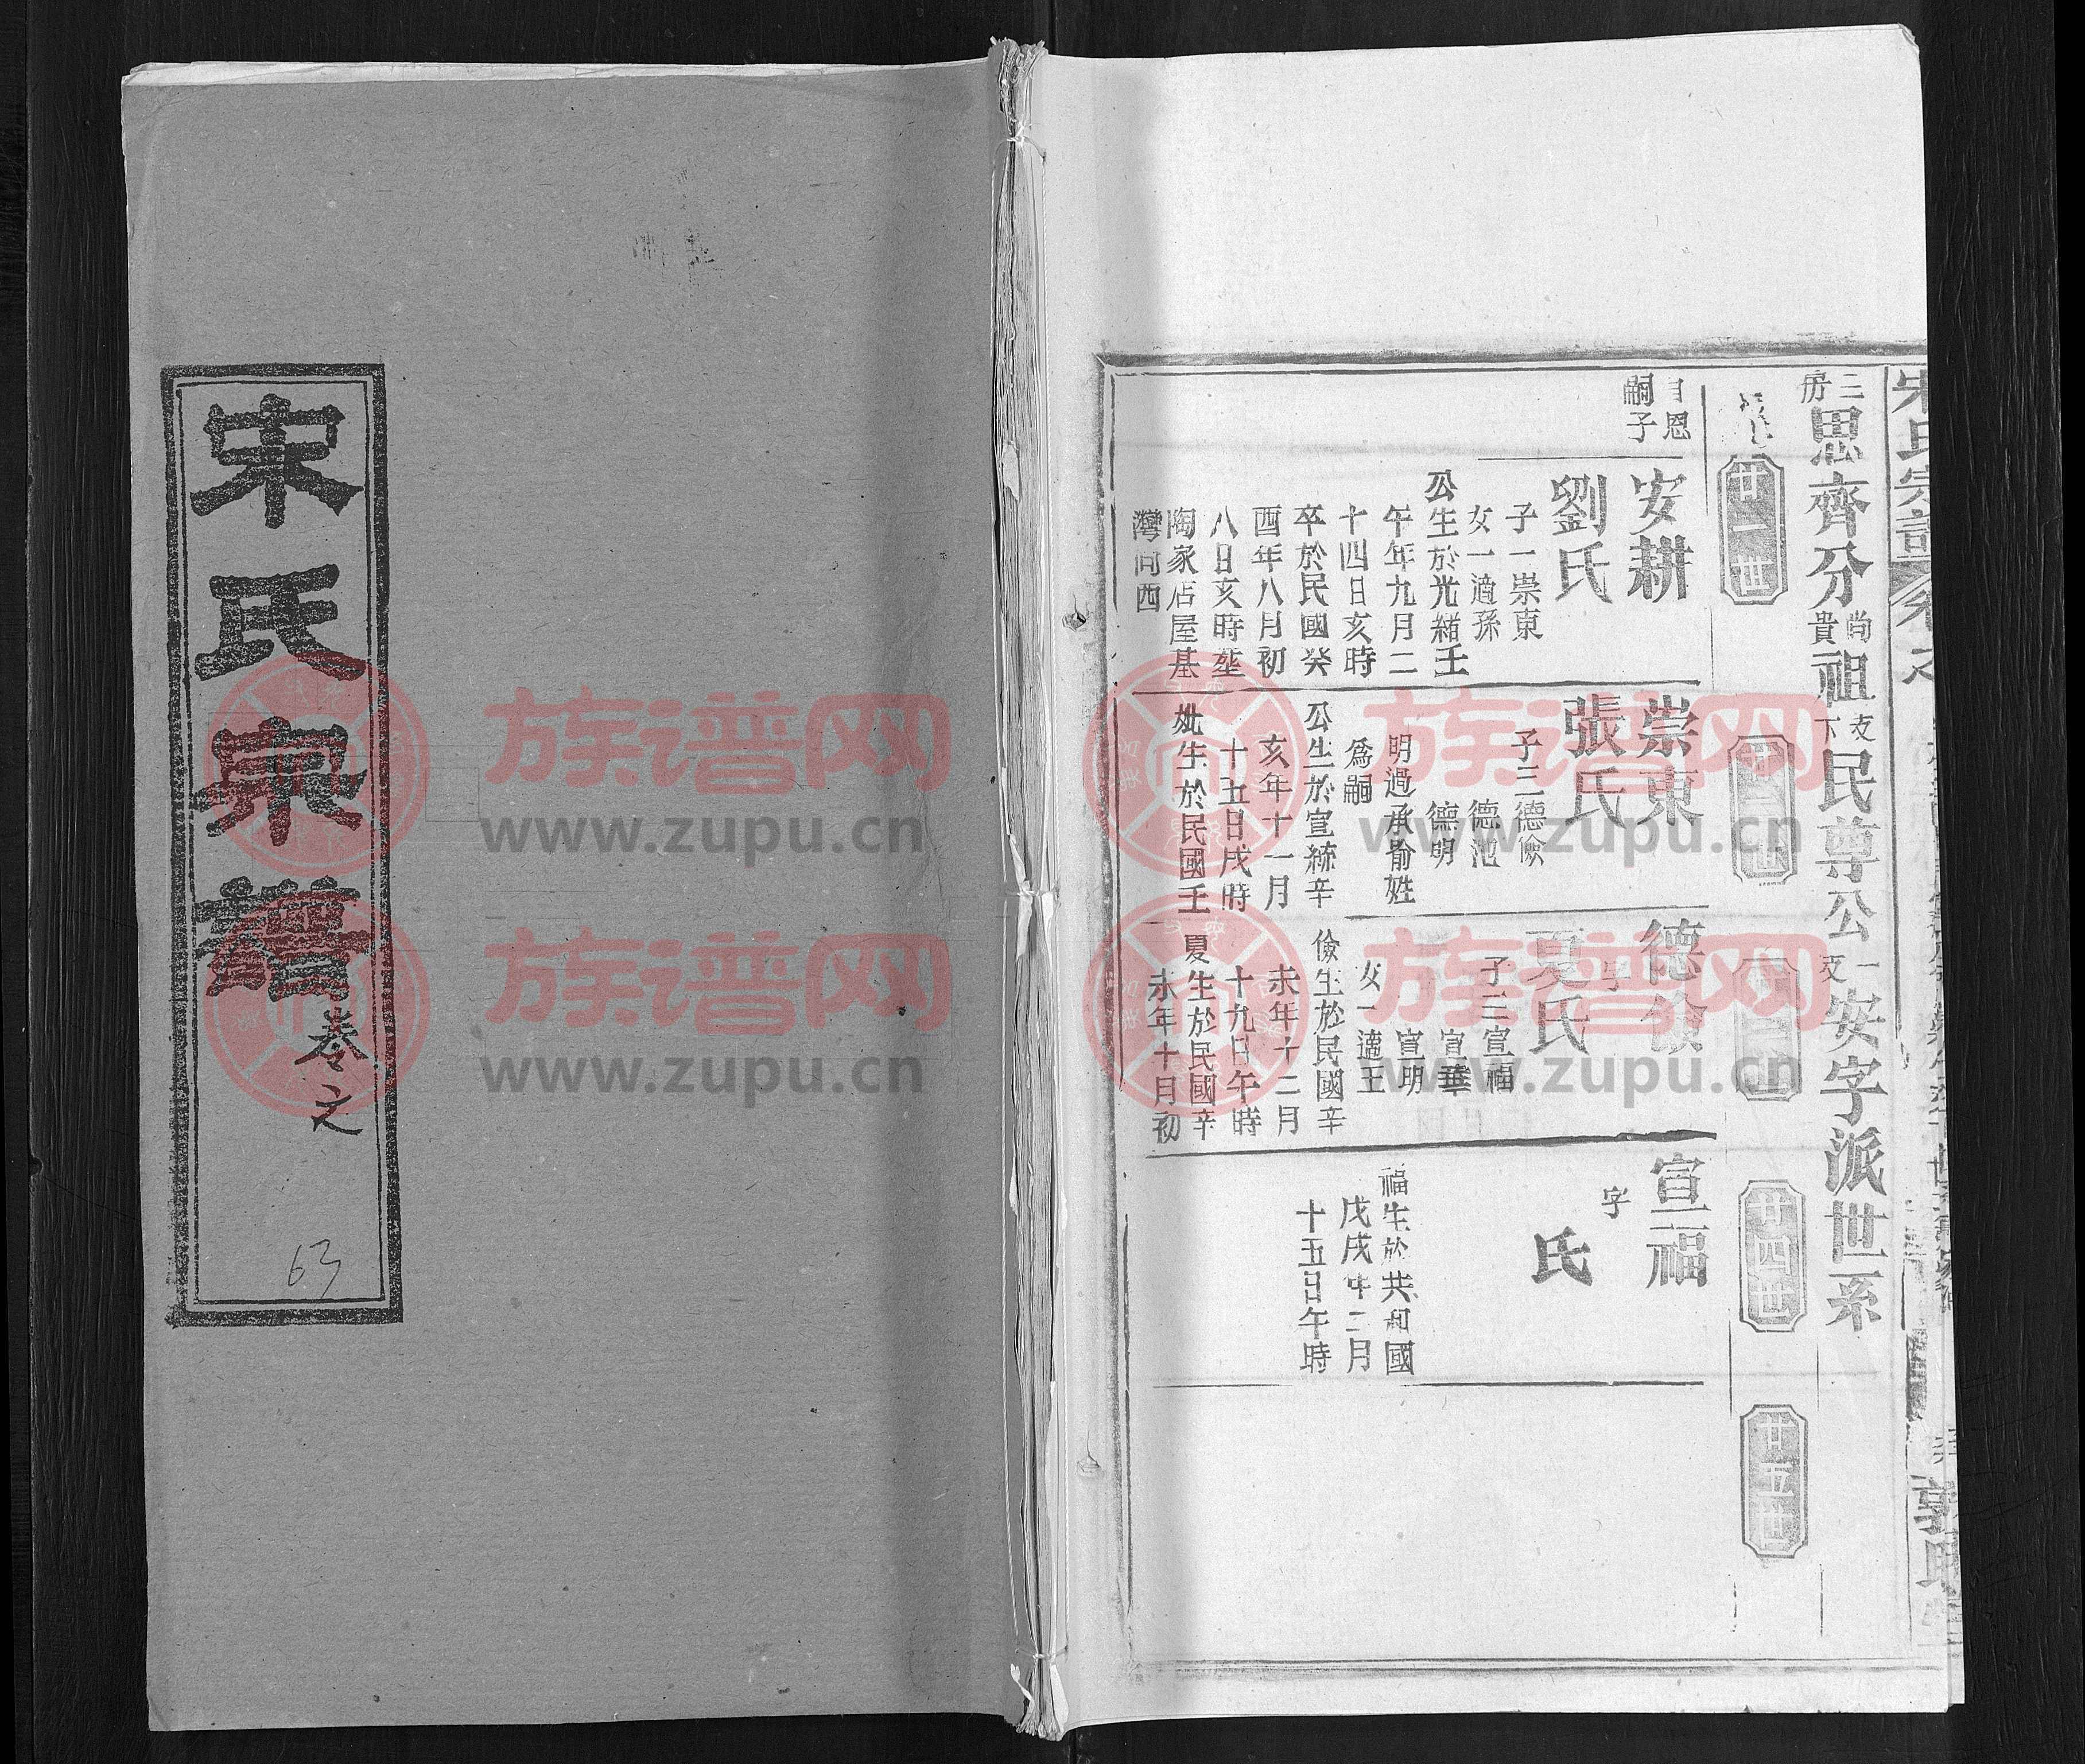 宋氏宗譜
卷之
63
三房思齊分尚貴祖支下民尊公一支安字派世系
廿一世
廿二世
廿三世
廿四世
廿五世
自恩
嗣子
安耕
劉氏
子一崇東
女一適孫
公生於光緒壬
午年九月二
十四日亥時
卒於民國癸
酉年八月初
八日亥時塟
陶家店屋基
灣向西
崇東
張氏
子三德儉
德池
德明
明過承喻姓
爲嗣
公生於宣統辛
亥年十一月
十五日戌時
妣生於民國壬
德儉
字
夏氏
子三宣福
宣華
宣明
女一適王
儉生於民國辛
未年十二月
十九日午時
夏生於民國辛
未年十月初
宣福
字
氏
福生於共和國
戊戌年二月
十五日午時
族谱网
www.zupu.cn
族谱网
www.zupu.cn
族谱网
www.zupu.cn
族谱网
www.zupu.cn